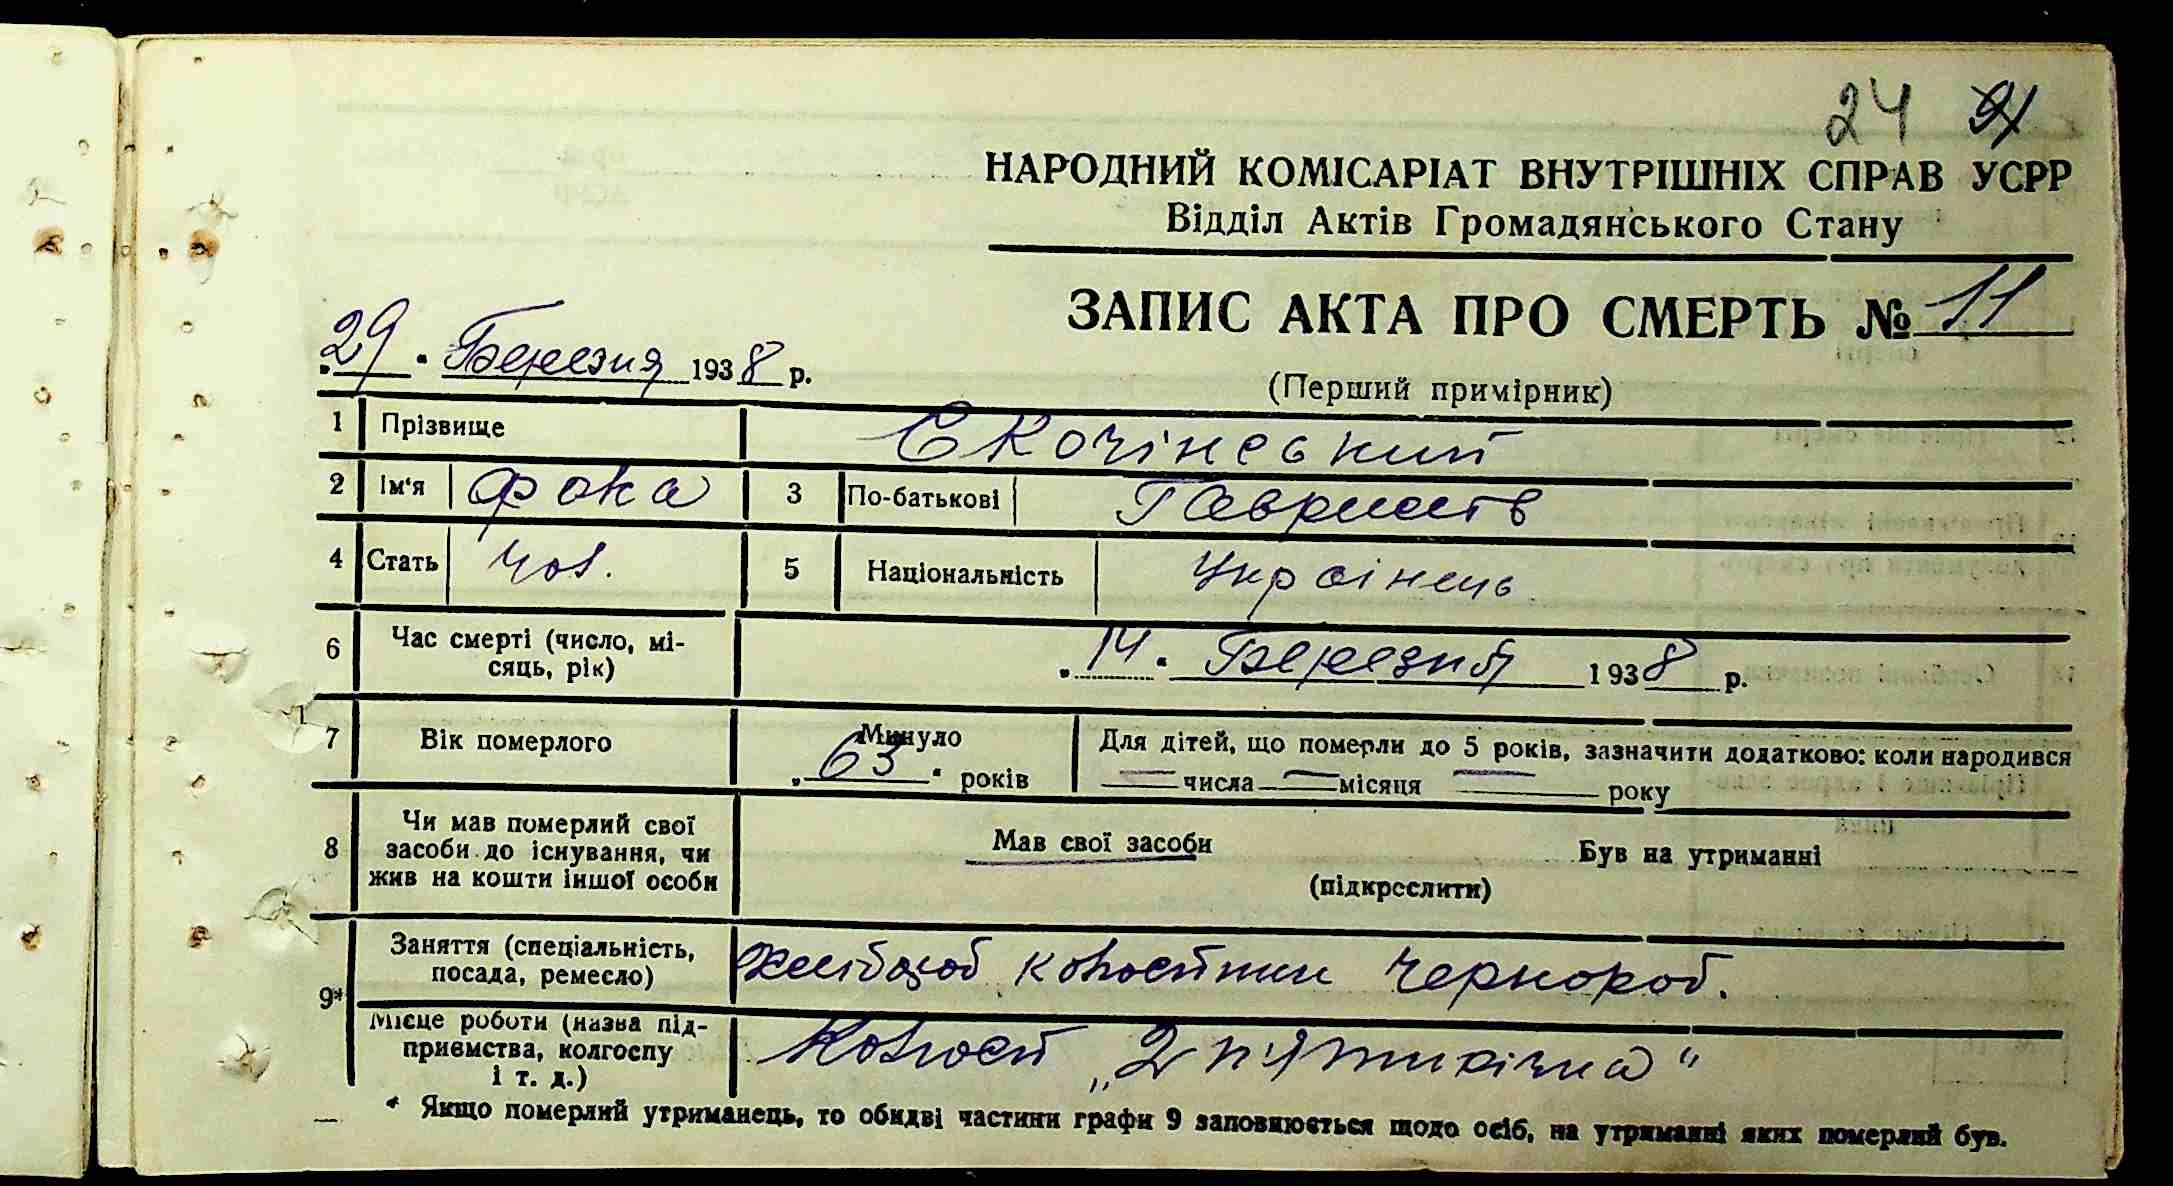 24
НАРОДНИЙ КОМІСАРІАТ ВНУТРІШНІХ СПРАВ УСРР
Відділ Актів Громадянського Стану
ЗАПИС АКТА ПРО СМЕРТЬ № 11
(Перший примірник)
„29" Березня 1938 р.
1 Прізвище Скочінський
2 Ім'я Фока 3 По-батькові
4 Стать чол. 5 Національність Українець
6 Час смерті (число, мі-
сяць, рік) „14" Березня 1938 р.
7 Вік померлого Минуло „63" років
Для дітей, що померли до 5 років, зазначити додатково: коли народився
— числа — місяця — року
8 Чи мав померлий свої
засоби до існування, чи
жив на кошти іншої особи
Мав свої засоби Був на утриманні
(підкреслити)
9* Заняття (спеціальність,
посада, ремесло) чернороб.
Місце роботи (назва під-
приємства, колгоспу
і т. д.) Колгосп „2 п'ятирічка"
* Якщо померлий утриманець, то обидві частини графи 9 заповнюється щодо осіб, на утриманні яких померлий був.